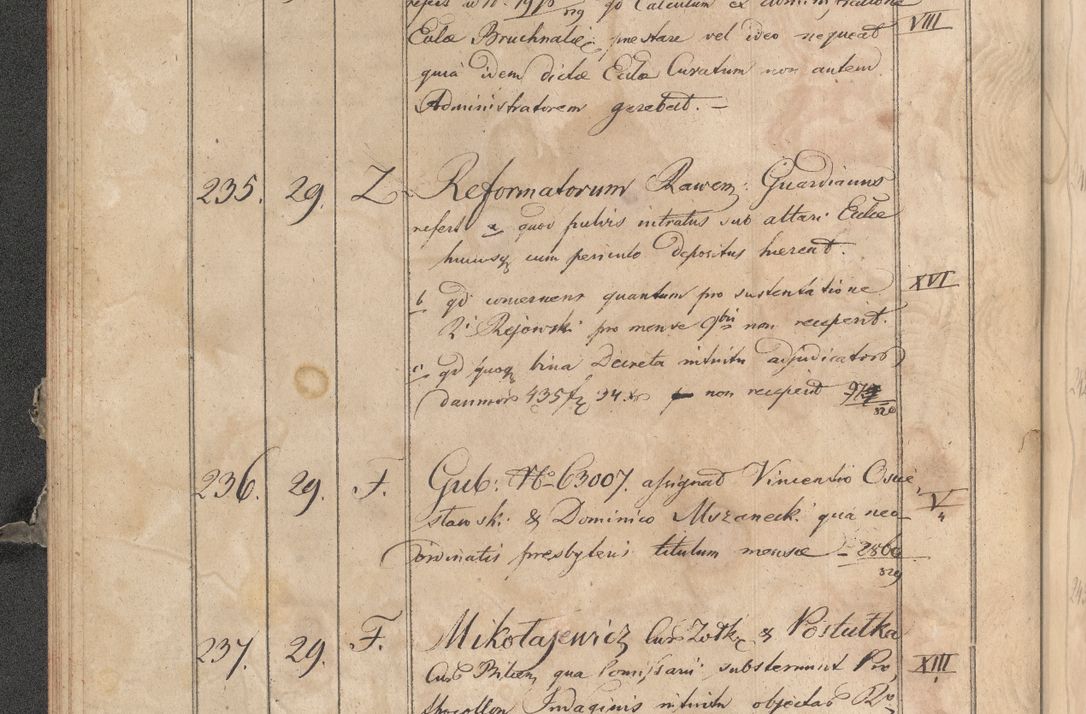 refert ad N. 1978/829 qd Calculum ex administratione
Eclæ Bruchnalien, præstare vel ideo nequeat VIII
quia idem dictæ Eclæ Curatum non autem
Administratorem gerebat. —
235. 29. Z. Reformatorum Rawen: Guardianus
refert a quod pulvis nitratus sub altari Eclæ
hujusq cum periculo depositus hæreat.
b qd concernens quantum pro sustentatione XVI
R. Rejowski pro mense 9bris non receperit.
c qd quoq bina Decreta intuitu adjudicatorum
damnor 435 f 34 x non receperit
829
236. 29. F. Gub: No 63007. assignat Vincentio Osue
slawski & Dominico Mszaneck. qua neo V/4
ordinatis presbyteris titulum mensæ – 2860
829
237. 29. F. Mikołajewicz Cur Zołk. & Postułka
Cur Philien, qua Commissarii substernunt Pro XIII
thocollon Indaginis intuitu objectas